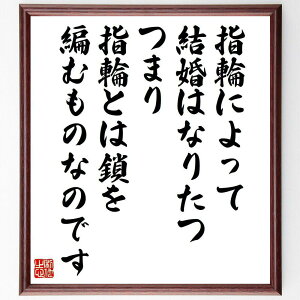 指輪によって
結婚はなりたつ
つまり
指輪とは鎖を
編むものなのです